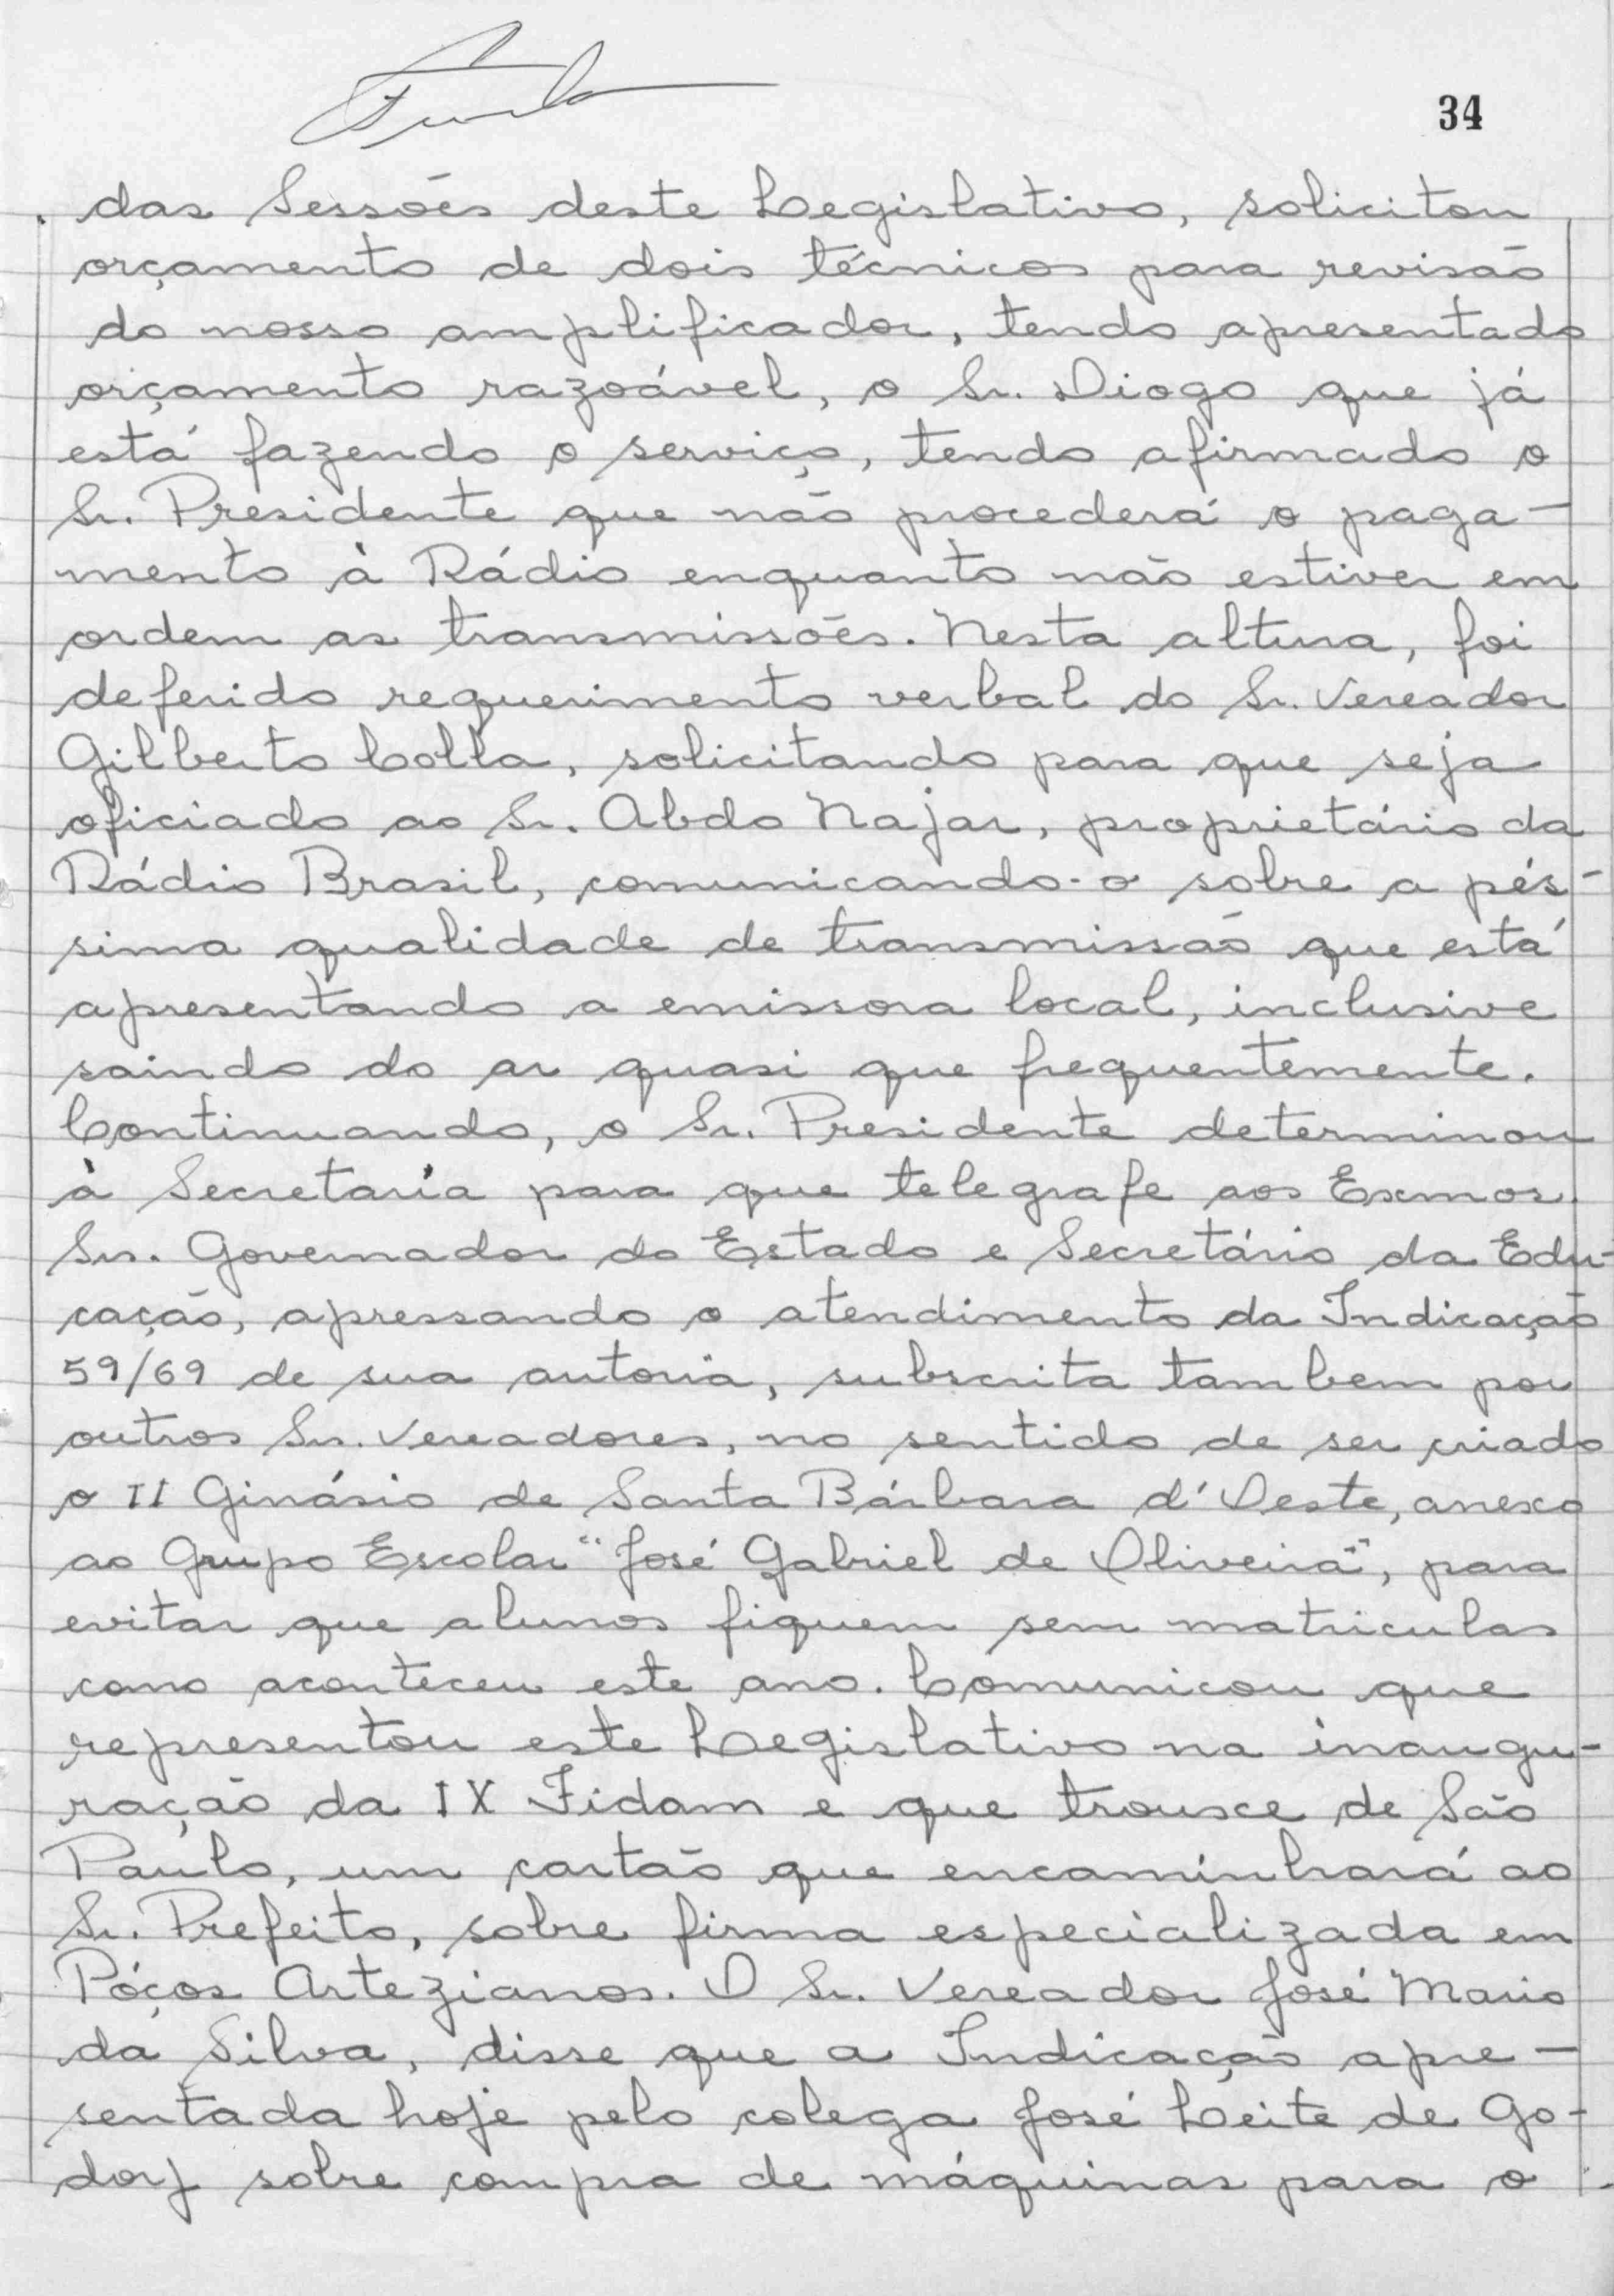 34
das Sessões deste Legislativo, solicitou
orçamento de dois técnicos para revisão
do nosso amplificador, tendo apresentado
orçamento razoável, o Sr. Diogo que já
está fazendo o serviço, tendo afirmado o
Sr. Presidente que não procederá o paga-
mento à Rádio enquanto não estiver em
ordem as transmissões. Nesta altura, foi
deferido requerimento verbal do Sr. Vereador
Gilberto Colla, solicitando para que seja
oficiado ao Sr. Abdo Najar, proprietário da
Rádio Brasil, comunicando-o sobre a pés-
sima qualidade de transmissão que está
apresentando a emissora local, inclusive
saindo do ar quasi que frequentemente.
Continuando, o Sr. Presidente determinou
à Secretaria para que telegrafe aos Exmos.
Srs. Governador do Estado e Secretário da Edu-
cação, apressando o atendimento da Indicação
59/69 de sua autoria, subscrita tambem por
outros Srs. Vereadores, no sentido de ser criado
o II Ginásio de Santa Bárbara d'Oeste, anexo
ao Grupo Escolar "José Gabriel de Oliveira", para
evitar que alunos fiquem sem matriculas
como aconteceu este ano. Comunicou que
representou este Legislativo na inaugu-
ração da IX Fidam e que trouxe de São
Paulo, um cartão que encaminhará ao
Sr. Prefeito, sobre firma especializada em
Póços Artezianos. O Sr. Vereador José Mario
da Silva, disse que a Indicação apre-
sentada hoje pelo colega José Leite de Go-
doy sobre compra de máquinas para o